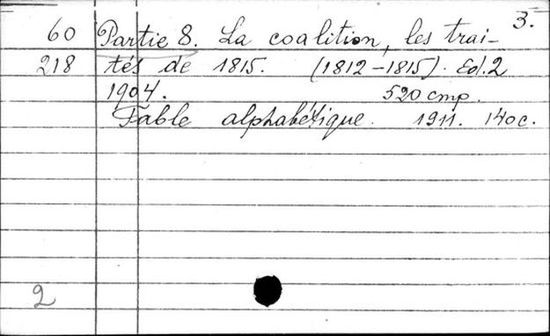 3.
60 Partie 8. La coalition, les trai-
218 tés de 1815. (1812-1815). Ed. 2
1904. 520 стр.
Table alphabétique. 1911. 140 с.
2